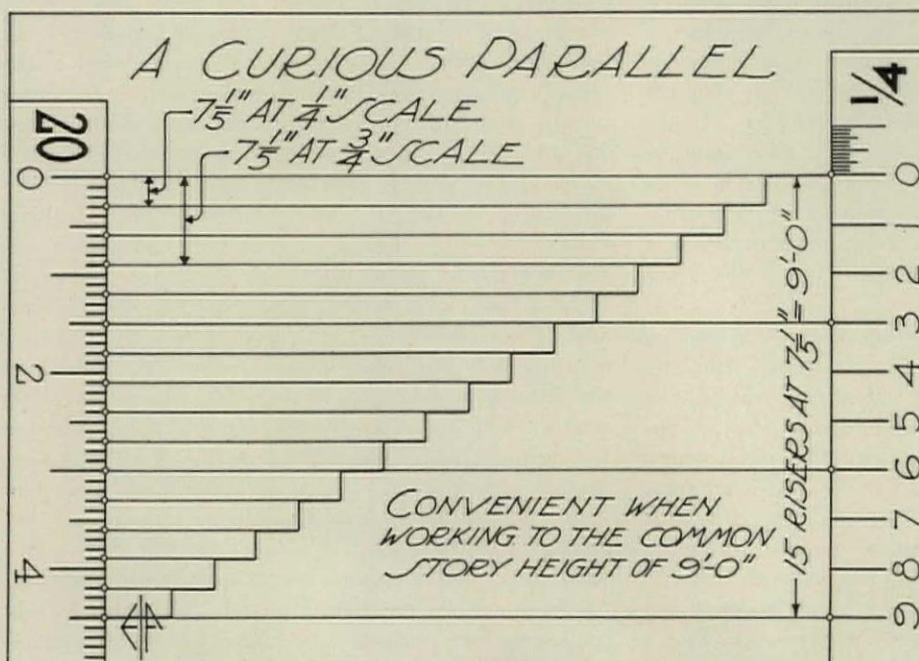 A CURIOUS PARALLEL
20
1/4
7 1/5" AT 1/4" SCALE
7 1/5" AT 3/4" SCALE
0
2
4
0
1
2
3
4
5
6
7
8
9
15 RISERS AT 7 1/5" = 9'-0"
CONVENIENT WHEN
WORKING TO THE COMMON
STORY HEIGHT OF 9'-0"